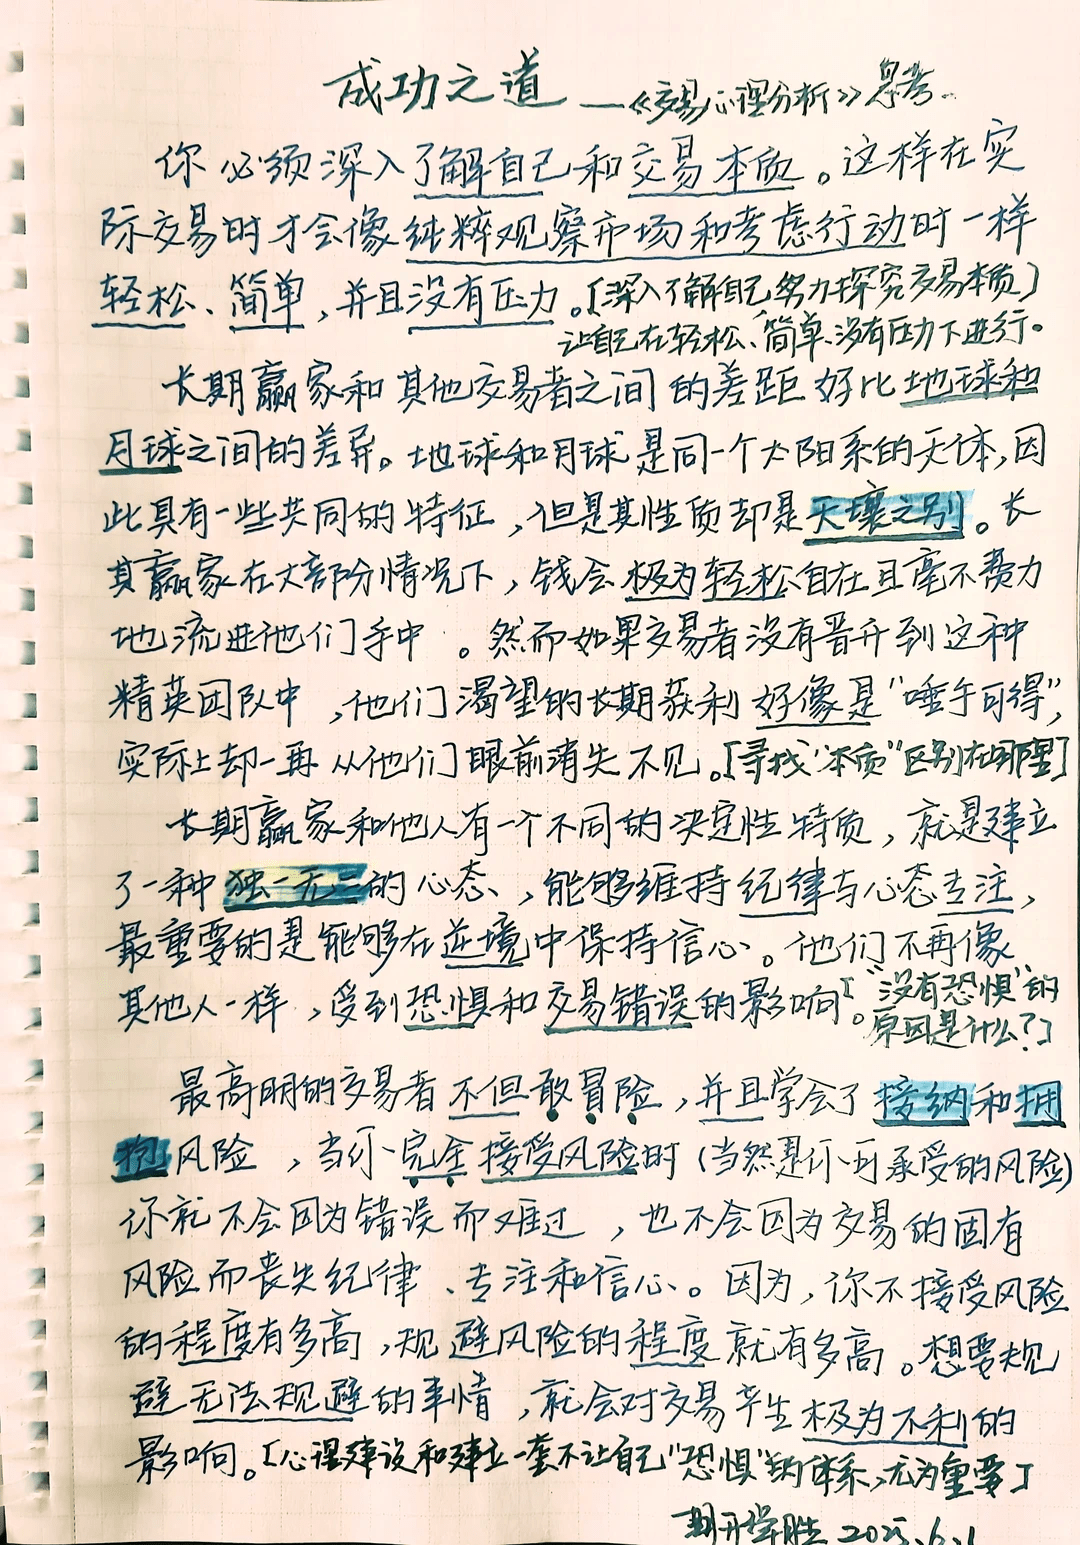 成功之道 ——《交易心理分析》思考
你必须深入了解自己和交易本质。这样在实
际交易时才会像纯粹观察市场和考虑行动时一样
轻松、简单，并且没有压力。[深入了解自己，努力探究交易本质]
让自己在轻松、简单、没有压力下进行。
长期赢家和其他交易者之间的差距好比地球和
月球之间的差异。地球和月球是同一个太阳系的天体，因
此具有一些共同的特征，但是其性质却是天壤之别。长
其赢家在大部份情况下，钱会极为轻松自在且毫不费力
地流进他们手中。然而如果交易者没有晋升到这种
精英团队中，他们渴望的长期获利好像是“唾手可得”，
实际上却一再从他们眼前消失不见。[寻找“本质”区别在哪里]
长期赢家和他人有一个不同的决定性特质，就是建立
了一种独一无二的心态、，能够维持纪律与心态专注，
最重要的是能够在逆境中保持信心。他们不再像
其他人一样，受到恐惧和交易错误的影响。[“没有恐惧”的
原因是什么？]
最高明的交易者不但敢冒险，并且学会了接纳和拥
抱风险，当你完全接受风险时（当然是你可承受的风险）
你就不会因为错误而难过，也不会因为交易的固有
风险而丧失纪律、专注和信心。因为，你不接受风险
的程度有多高，规避风险的程度就有多高。想要规
避无法规避的事情，就会对交易产生极为不利的
影响。[心理建设和建立一套不让自己“恐惧”的体系，尤为重要]
2025.6.1